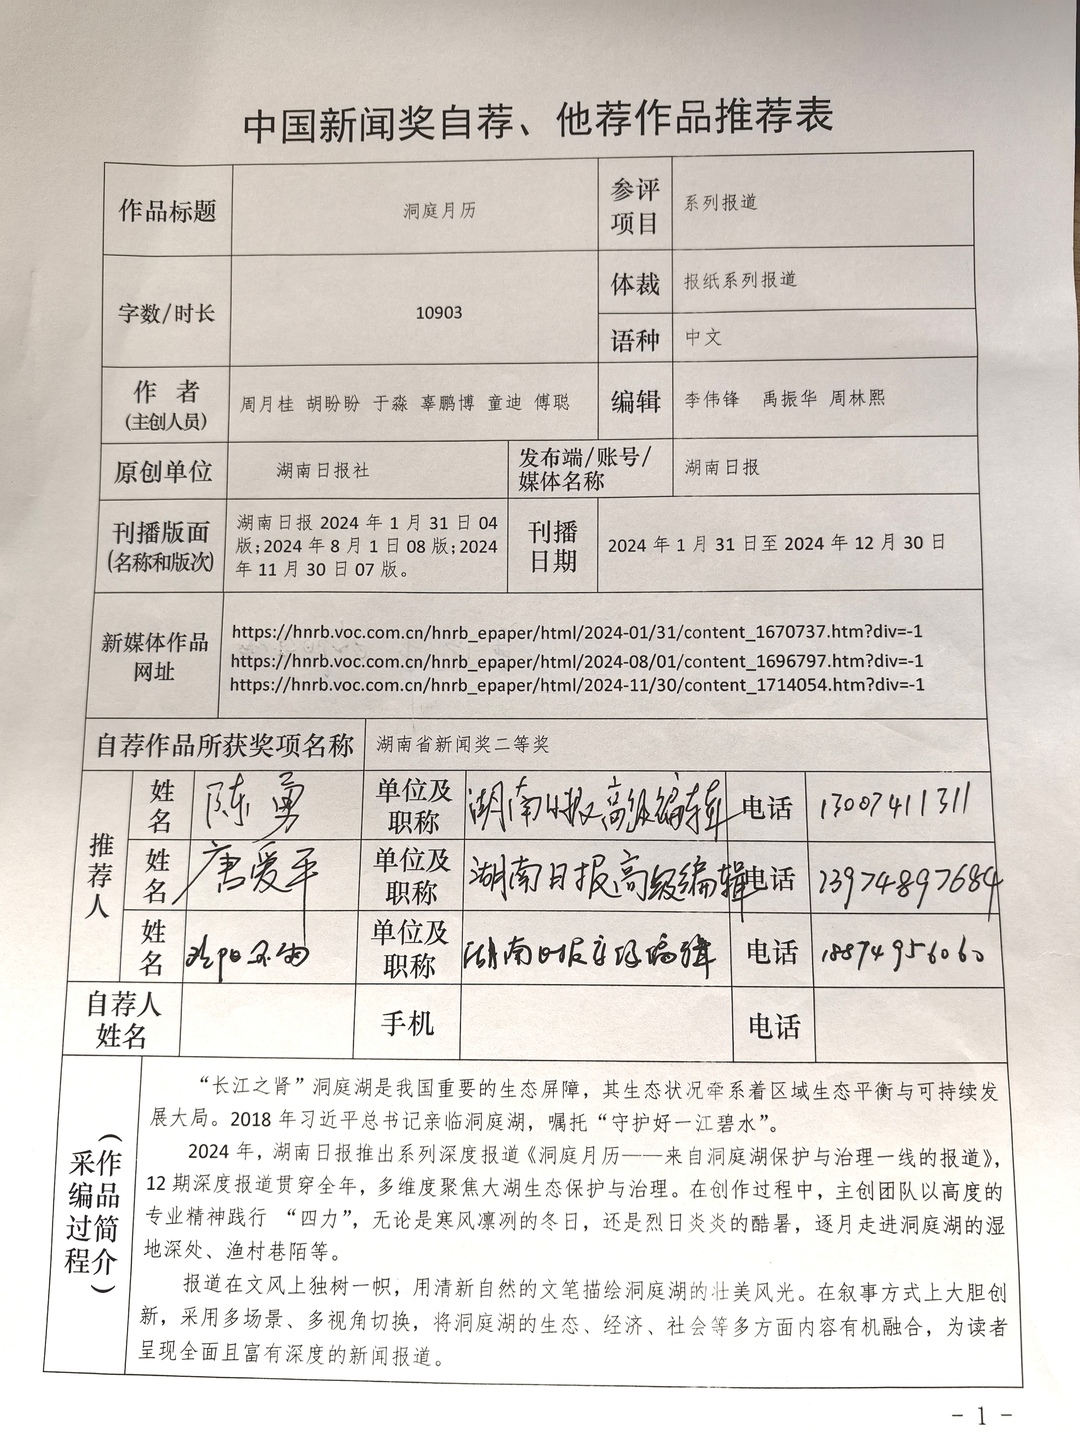 中国新闻奖自荐、他荐作品推荐表
作品标题
洞庭月历
参评
项目
系列报道
字数/时长
10903
体裁
报纸系列报道
语种
中文
作 者
(主创人员)
周月桂 胡盼盼 于淼 辜鹏博 童迪 傅聪
编辑
李伟锋 禹振华 周林熙
原创单位
湖南日报社
发布端/账号/
媒体名称
湖南日报
刊播版面
(名称和版次)
湖南日报 2024 年 1 月 31 日 04
版;2024 年 8 月 1 日 08 版;2024
年 11 月 30 日 07 版。
刊播
日期
2024 年 1 月 31 日至 2024 年 12 月 30 日
新媒体作品
网址
https://hnrb.voc.com.cn/hnrb_epaper/html/2024-01/31/content_1670737.htm?div=-1
https://hnrb.voc.com.cn/hnrb_epaper/html/2024-08/01/content_1696797.htm?div=-1
https://hnrb.voc.com.cn/hnrb_epaper/html/2024-11/30/content_1714054.htm?div=-1
自荐作品所获奖项名称
湖南省新闻奖二等奖
推荐人
姓名
陈勇
单位及
职称
湖南日报高级编辑
电话
13007411311
姓名
唐爱平
单位及
职称
湖南日报高级编辑
电话
13974897684
姓名
单位及
职称
湖南日报高级编辑
电话
18874956060
自荐人
姓名
手机
电话
采编过程
(作品简介)
“长江之肾”洞庭湖是我国重要的生态屏障，其生态状况牵系着区域生态平衡与可持续发
展大局。2018 年习近平总书记亲临洞庭湖，嘱托“守护好一江碧水”。
2024 年，湖南日报推出系列深度报道《洞庭月历——来自洞庭湖保护与治理一线的报道》，
12 期深度报道贯穿全年，多维度聚焦大湖生态保护与治理。在创作过程中，主创团队以高度的
专业精神践行 “四力”，无论是寒风凛冽的冬日，还是烈日炎炎的酷暑，逐月走进洞庭湖的湿
地深处、渔村巷陌等。
报道在文风上独树一帜，用清新自然的文笔描绘洞庭湖的壮美风光。在叙事方式上大胆创
新，采用多场景、多视角切换，将洞庭湖的生态、经济、社会等多方面内容有机融合，为读者
呈现全面且富有深度的新闻报道。
- 1 -